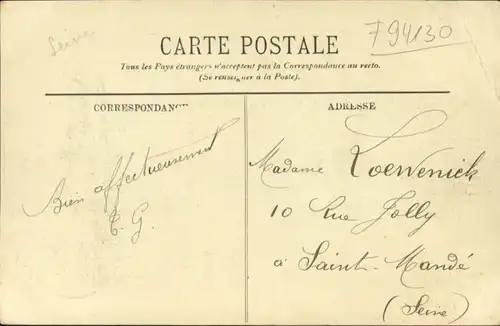 Seine
F94130
CARTE POSTALE
Tous les Pays étrangers n'acceptent pas la Correspondance au recto.
(Se renseigner à la Poste).
CORRESPONDANCE
ADRESSE
Bien affectueusement
E. G.
Madame Loewenick
10 Rue Jolly
à Saint-Mandé
(Seine)